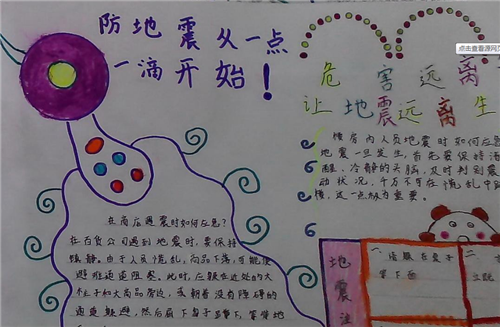 防地震从一点
一滴开始!
点击查看源网页
危害远离
让地震远离生
楼房内人员地震时如何应急?
地震一旦发生,首先要保持清
醒、冷静的头脑,及时判别震
动状况,千万不可在慌乱中跳
楼,这一点极为重要。
在商店遇震时如何应急?
在百货公司遇到地震时,要保持
镇静。由于人员慌乱,商品下落,可能使
避难通道阻塞。此时,应躲在近处的大
柱子和大商品旁边,或朝着没有障碍的
通道躲避,然后屈下身子蹲下,等待地
地震注
一、应躲在桌子
等下面
二、